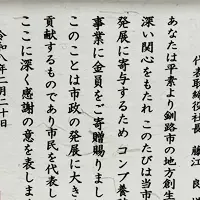 代表取締役社長 藤江 良
あなたは平素より釧路市の地方創生
深い関心をもたれ このたびは当市
発展に寄与するため コンブ養
事業に金員をご寄贈賜りまし
このことは市政の発展に大き
貢献するものであり市民を代表し
ここに深く感謝の意を表しま
令和八年二月二十日